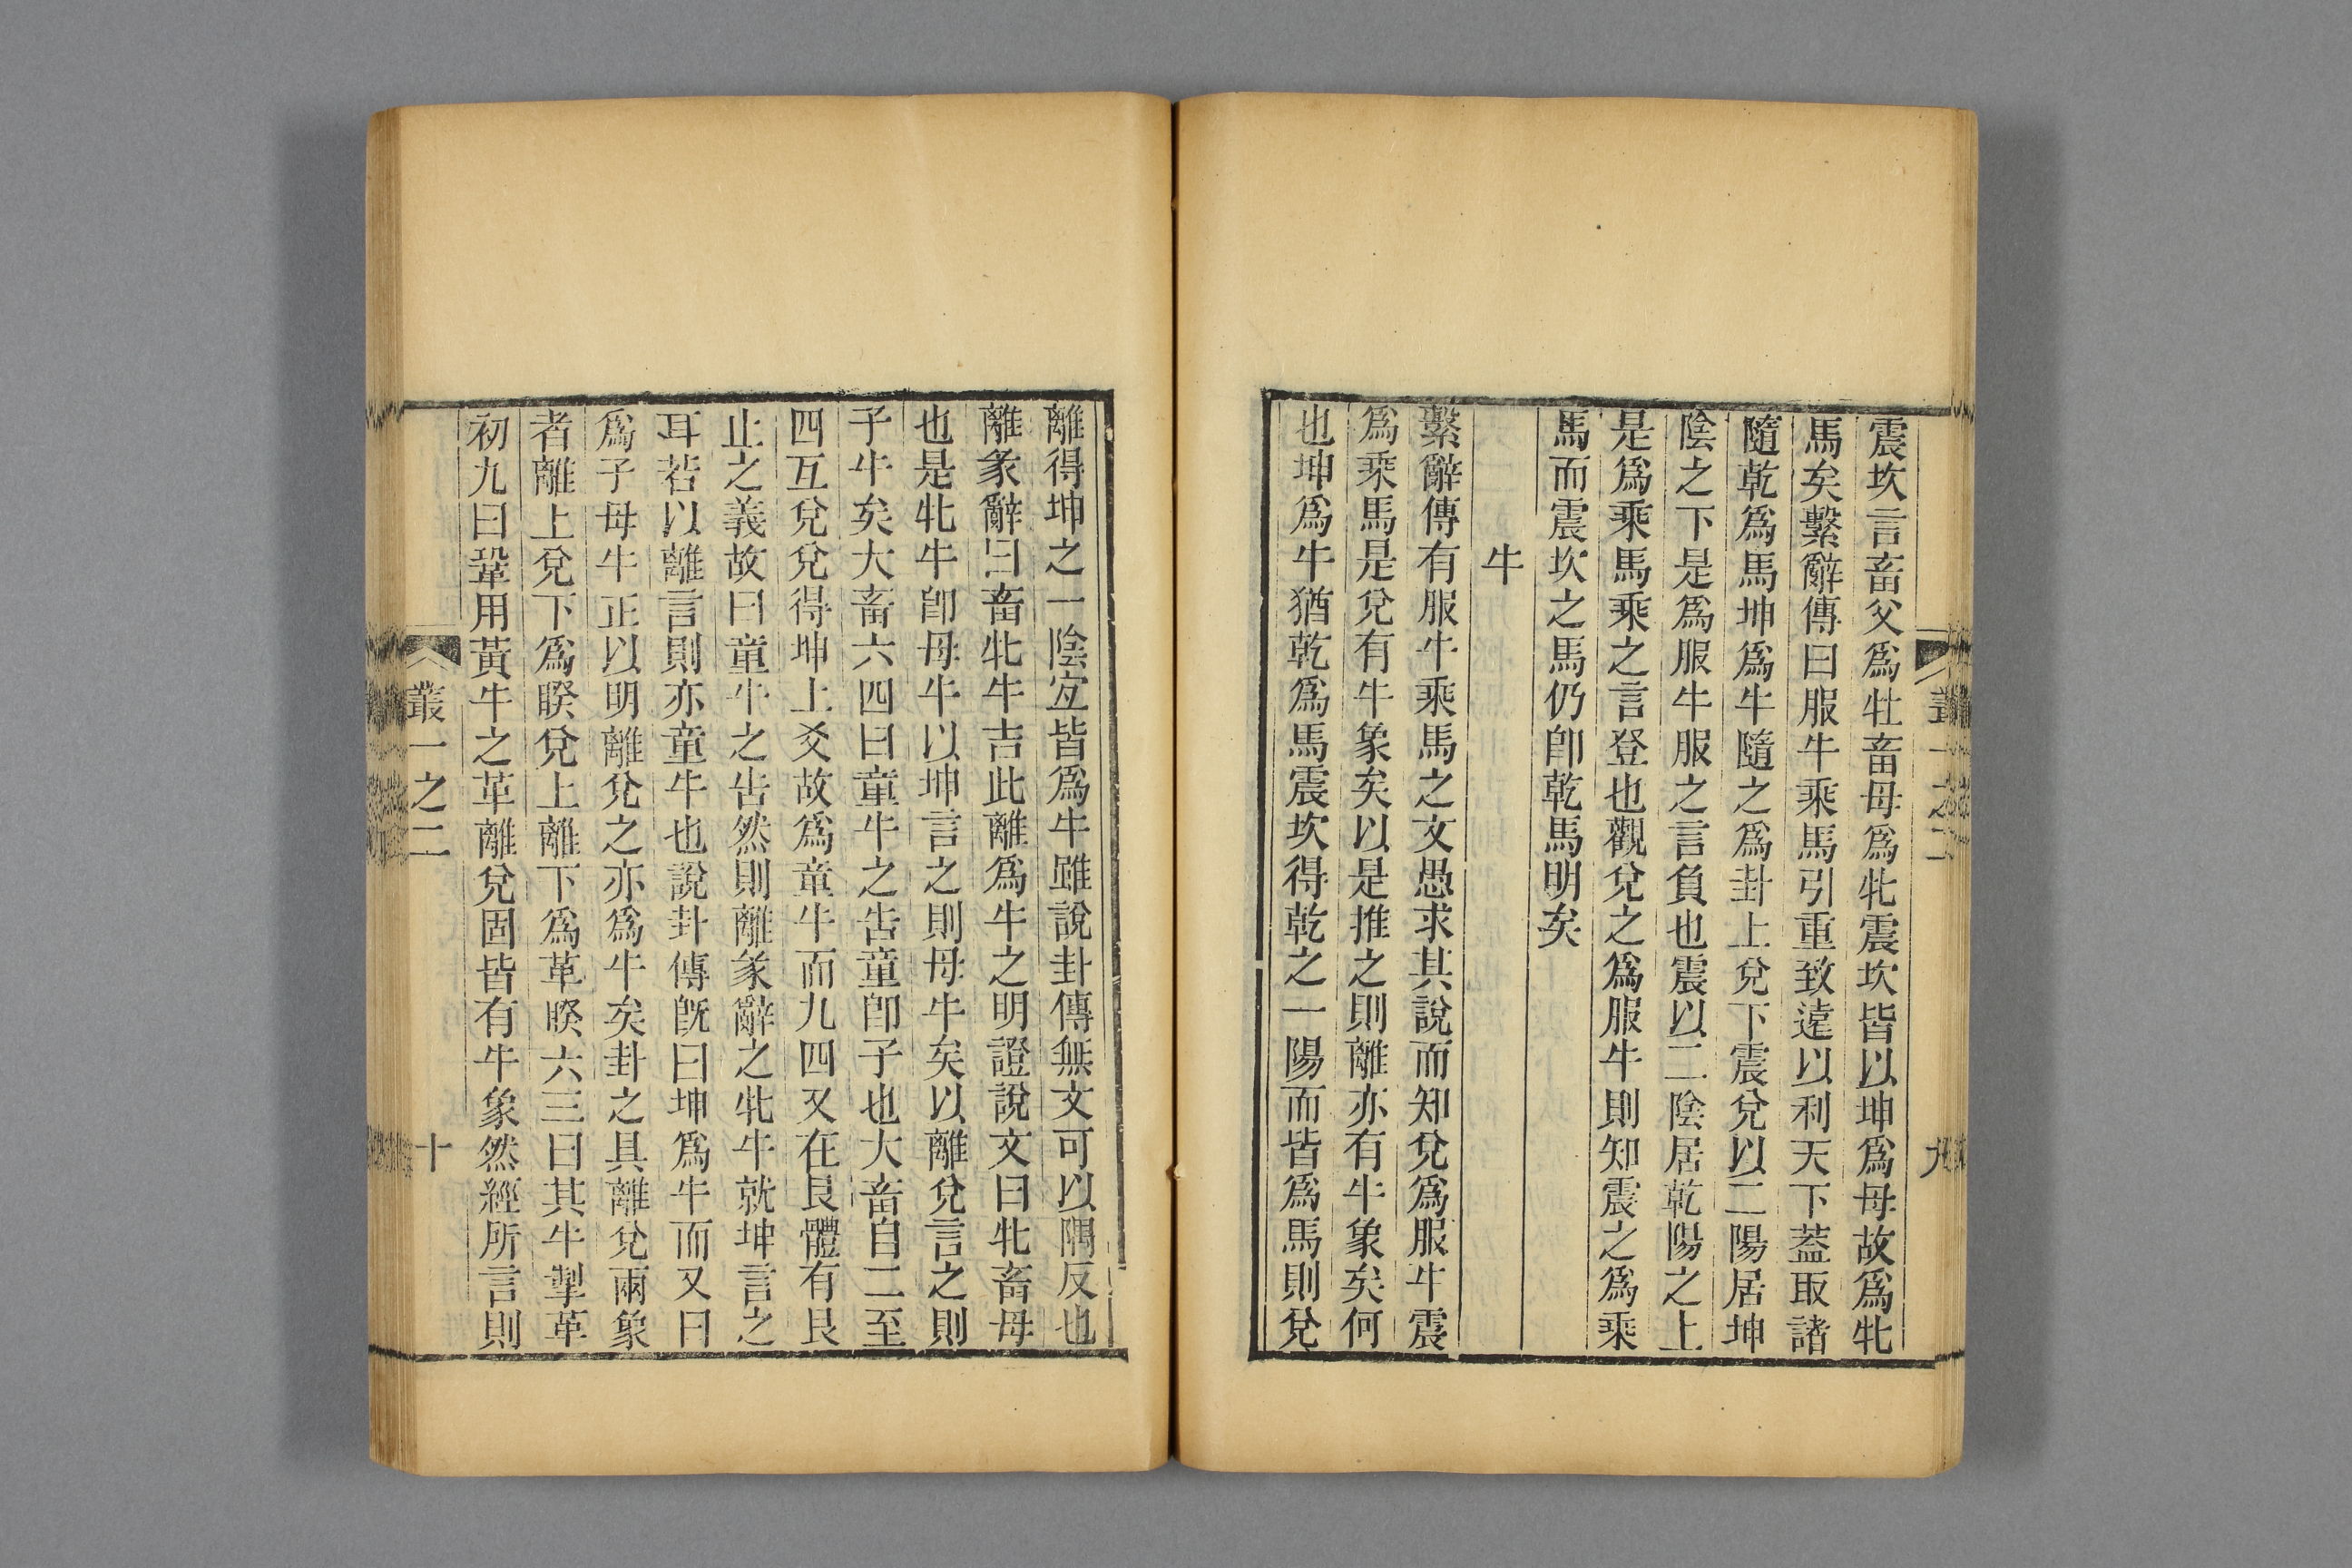 震坎言畜父爲牡畜母爲牝震坎皆以坤爲母故爲牝
馬矣繫辭傳曰服牛乘馬引重致遠以利天下蓋取諸
隨乾爲馬坤爲牛隨之爲卦上兌下震兌以二陽居坤
陰之下是爲服牛服之言負也震以二陰居乾陽之上
是爲乘馬乘之言登也觀兌之爲服牛則知震之爲乘
馬而震坎之馬仍卽乾馬明矣
牛
繫辭傳有服牛乘馬之文愚求其說而知兌爲服牛震
爲乘馬是兌有牛象矣以是推之則離亦有牛象矣何
也坤爲牛猶乾爲馬震坎得乾之一陽而皆爲馬則兌
離得坤之一陰宐皆爲牛雖說卦傳無文可以隅反也
離彖辭曰畜牝牛吉此離爲牛之明證說文曰牝畜母
也是牝牛卽母牛以坤言之則母牛矣以離兌言之則
子牛矣大畜六四曰童牛之告童卽子也大畜自二至
四互兌兌得坤上爻故爲童牛而九四又在艮體有艮
止之義故曰童牛之告然則離彖辭之牝牛就坤言之
耳若以離言則亦童牛也說卦傳旣曰坤爲牛而又曰
爲子母牛正以明離兌之亦爲牛矣卦之具離兌兩象
者離上兌下爲睽兌上離下爲革睽六三曰其牛掣革
初九曰鞏用黃牛之革離兌固皆有牛象然經所言則
叢一之二
十